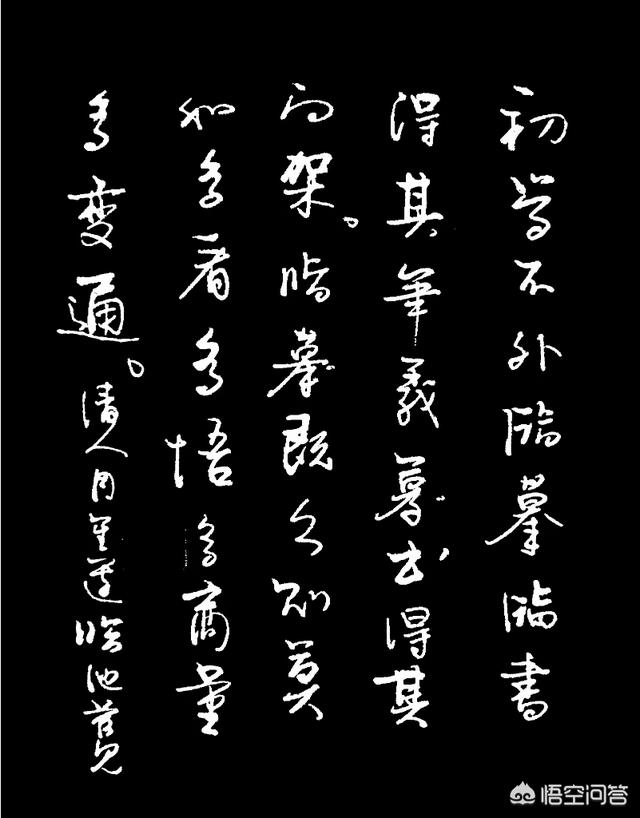 初學不外臨摹臨書
得其筆義摹書得其
间架。臨摹既久則莫
如多看多悟多商量
多變通。清人周星蓮臨池管見
悟空问答